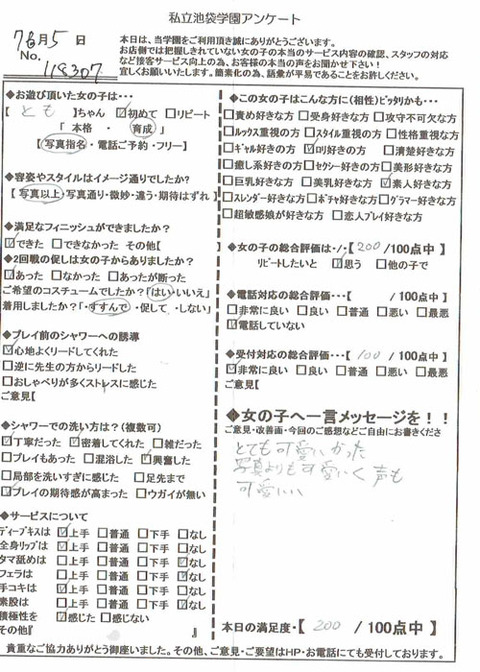 私立池袋学園アンケート
7月5日
No. 118307
本日は、当学園をご利用頂き誠にありがとうございます。
お店側では把握しきれていない女の子の本当のサービス内容の確認、スタッフの対応
など接客サービス向上の為、お客様の本当の声をお聞かせ下さい!
宜しくお願いいたします。簡素化の為、語彙が平易であることをお許しください。
◆お遊び頂いた女の子は…
【 とも 】ちゃん ☑初めて □リピート
「 本格 ・ 育成 」
【写真指名・電話ご予約・フリー】
◆容姿やスタイルはイメージ通りでしたか?
【写真以上・写真通り・微妙・違う・期待はずれ】
◆満足なフィニッシュができましたか?
☑できた □できなかった その他【
◆2回戦の促しは女の子からありましたか?
☑あった □なかった □あったが断った
ご希望のコスチュームでしたか?「はい・いいえ」
着用しましたか?「・すすんで・促して・しない」
◆プレイ前のシャワーへの誘導
☑心地よくリードしてくれた
□逆に先生の方からリードした
□おしゃべりが多くストレスに感じた
ご意見【
◆シャワーでの洗い方は?(複数可)
☑丁寧だった ☑密着してくれた □雑だった
□プレイもあった □混浴した ☑興奮した
□局部を洗いすぎに感じた □足先まで
☑プレイの期待感が高まった □ウガイが無い
◆サービスについて
ディープキスは ☑上手 □普通 □下手 □なし
全身リップは ☑上手 □普通 □下手 □なし
タマ舐めは □上手 □普通 □下手 ☑なし
フェラは □上手 □普通 □下手 ☑なし
手コキは ☑上手 □普通 □下手 □なし
素股は □上手 □普通 □下手 ☑なし
積極性を ☑感じた □感じない
その他『 』
◆この女の子はこんな方に(相性)ピッタリかも…
□責め好きな方 □受身好きな方 □攻守不可欠な方
□ルックス重視の方 □スタイル重視の方 □性格重視な方
□ギャル好きの方 ☑ロリ好きの方 □清楚好きな方
□癒し系好きの方 □セクシー好きの方 □美形好きな方
□巨乳好きな方 □美乳好きな方 ☑素人好きな方
□スレンダー好きな方 □ポチャ好きな方 □グラマー好きな方
□超敏感娘が好きな方 □恋人プレイ好きな方
◆女の子の総合評価は・/・【 200 /100点中】
リピートしたいと ☑思う □他の子で
◆電話対応の総合評価・・・【 /100点中】
□非常に良い □良い □普通 □悪い □最悪
☑電話していない
◆受付対応の総合評価・・・【 100 /100点中】
☑非常に良い □良い □普通 □悪い □最悪
ご意見【
◆女の子へ一言メッセージを!!
ご意見・改善面・今回のご感想などご自由にお書きくださ
とても可愛いかった
写真よりも可愛いく 声も
可愛いい
本日の満足度・【 200 /100点中】
貴重なご協力ありがとう御座いました。その他、ご意見・ご要望はHP・お電話にても受付しております。